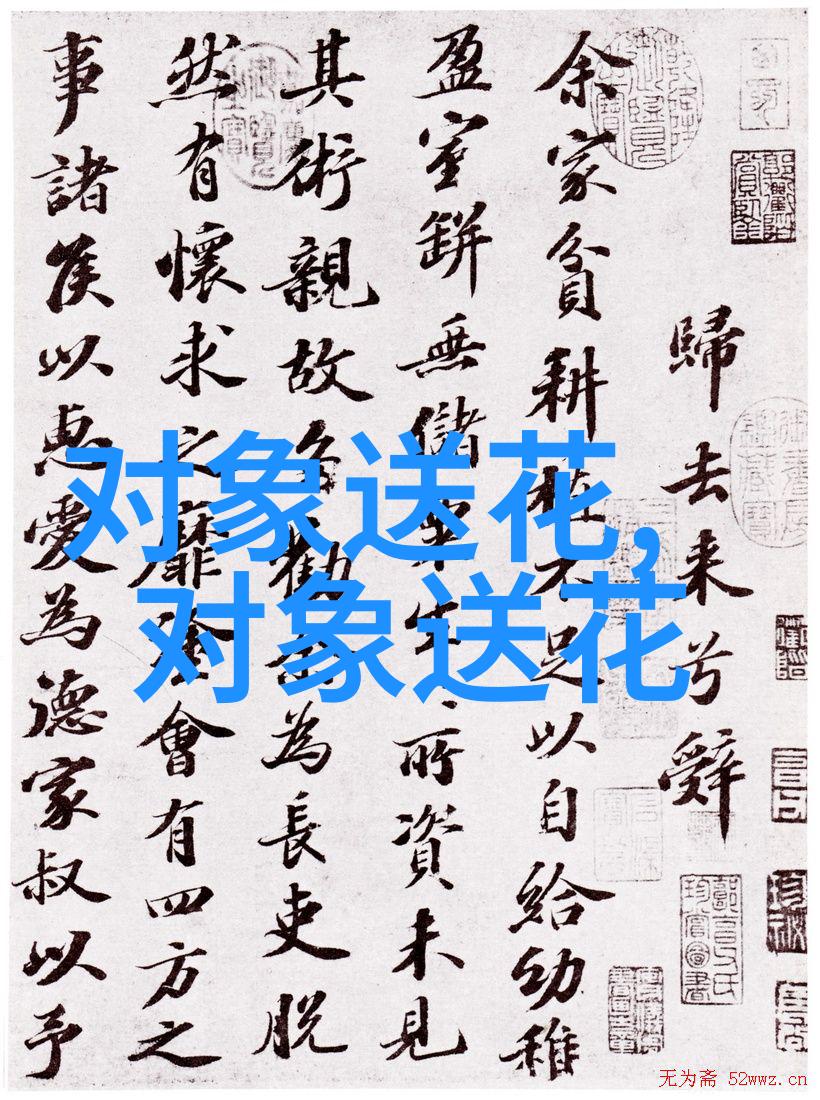 歸去来兮辭
余家貧耕植不足以自給幼稚
盈室缾無儲粟生、所資未見
其術親故多勸余為長吏脫
然有懷求之靡途會有四方之
事諸侯以惠愛為德家叔以予
对象送花,
对象送花
无为斋 52wwz.cn